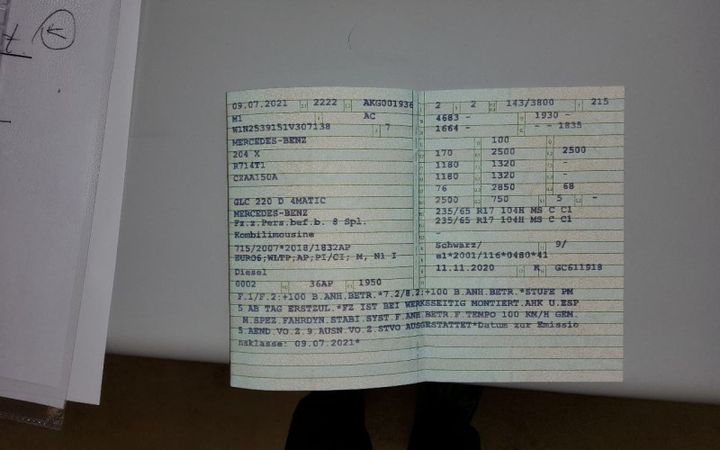 09.07.2021 2222 AKG001936
M1 AC
W1N2539151V307138 7
MERCEDES-BENZ
204 X
R714T1
CZAA150A
GLC 220 D 4MATIC
MERCEDES-BENZ
Fz.z.Pers.bef.b. 8 Spl.
Kombilimousine
715/2007*2018/1832AP
EURO6;WLTP;AP;PI/CI; M, N1 I
Diesel
0002 36AP 1950
2 2 143/3800 215
4683 - 1930 -
1664 - - - 1835
100
170 2500 2500
1180 1320 -
1180 1320 -
76 2850 68
2500 750 5 -
235/65 R17 104H MS C C1
235/65 R17 104H MS C C1
-
Schwarz/ 9/
e1*2001/116*0480*41
11.11.2020 K GC611918
F.1/F.2:+100 B.ANH.BETR.*7.2/8.2:+100 B.ANH.BETR.*STUFE PM
5 AB TAG ERSTZUL.*FZ IST BEI WERKSSEITIG MONTIERT.AHK U.ESP
M.SPEZ.FAHRDYN.STABI.SYST.F.ANH.BETR.F.TEMPO 100 KM/H GEM.
5.AEND.VO.Z.9.AUSN.VO.Z.STVO AUSGESTATTET*Datum zur Emissio
nsklasse: 09.07.2021*